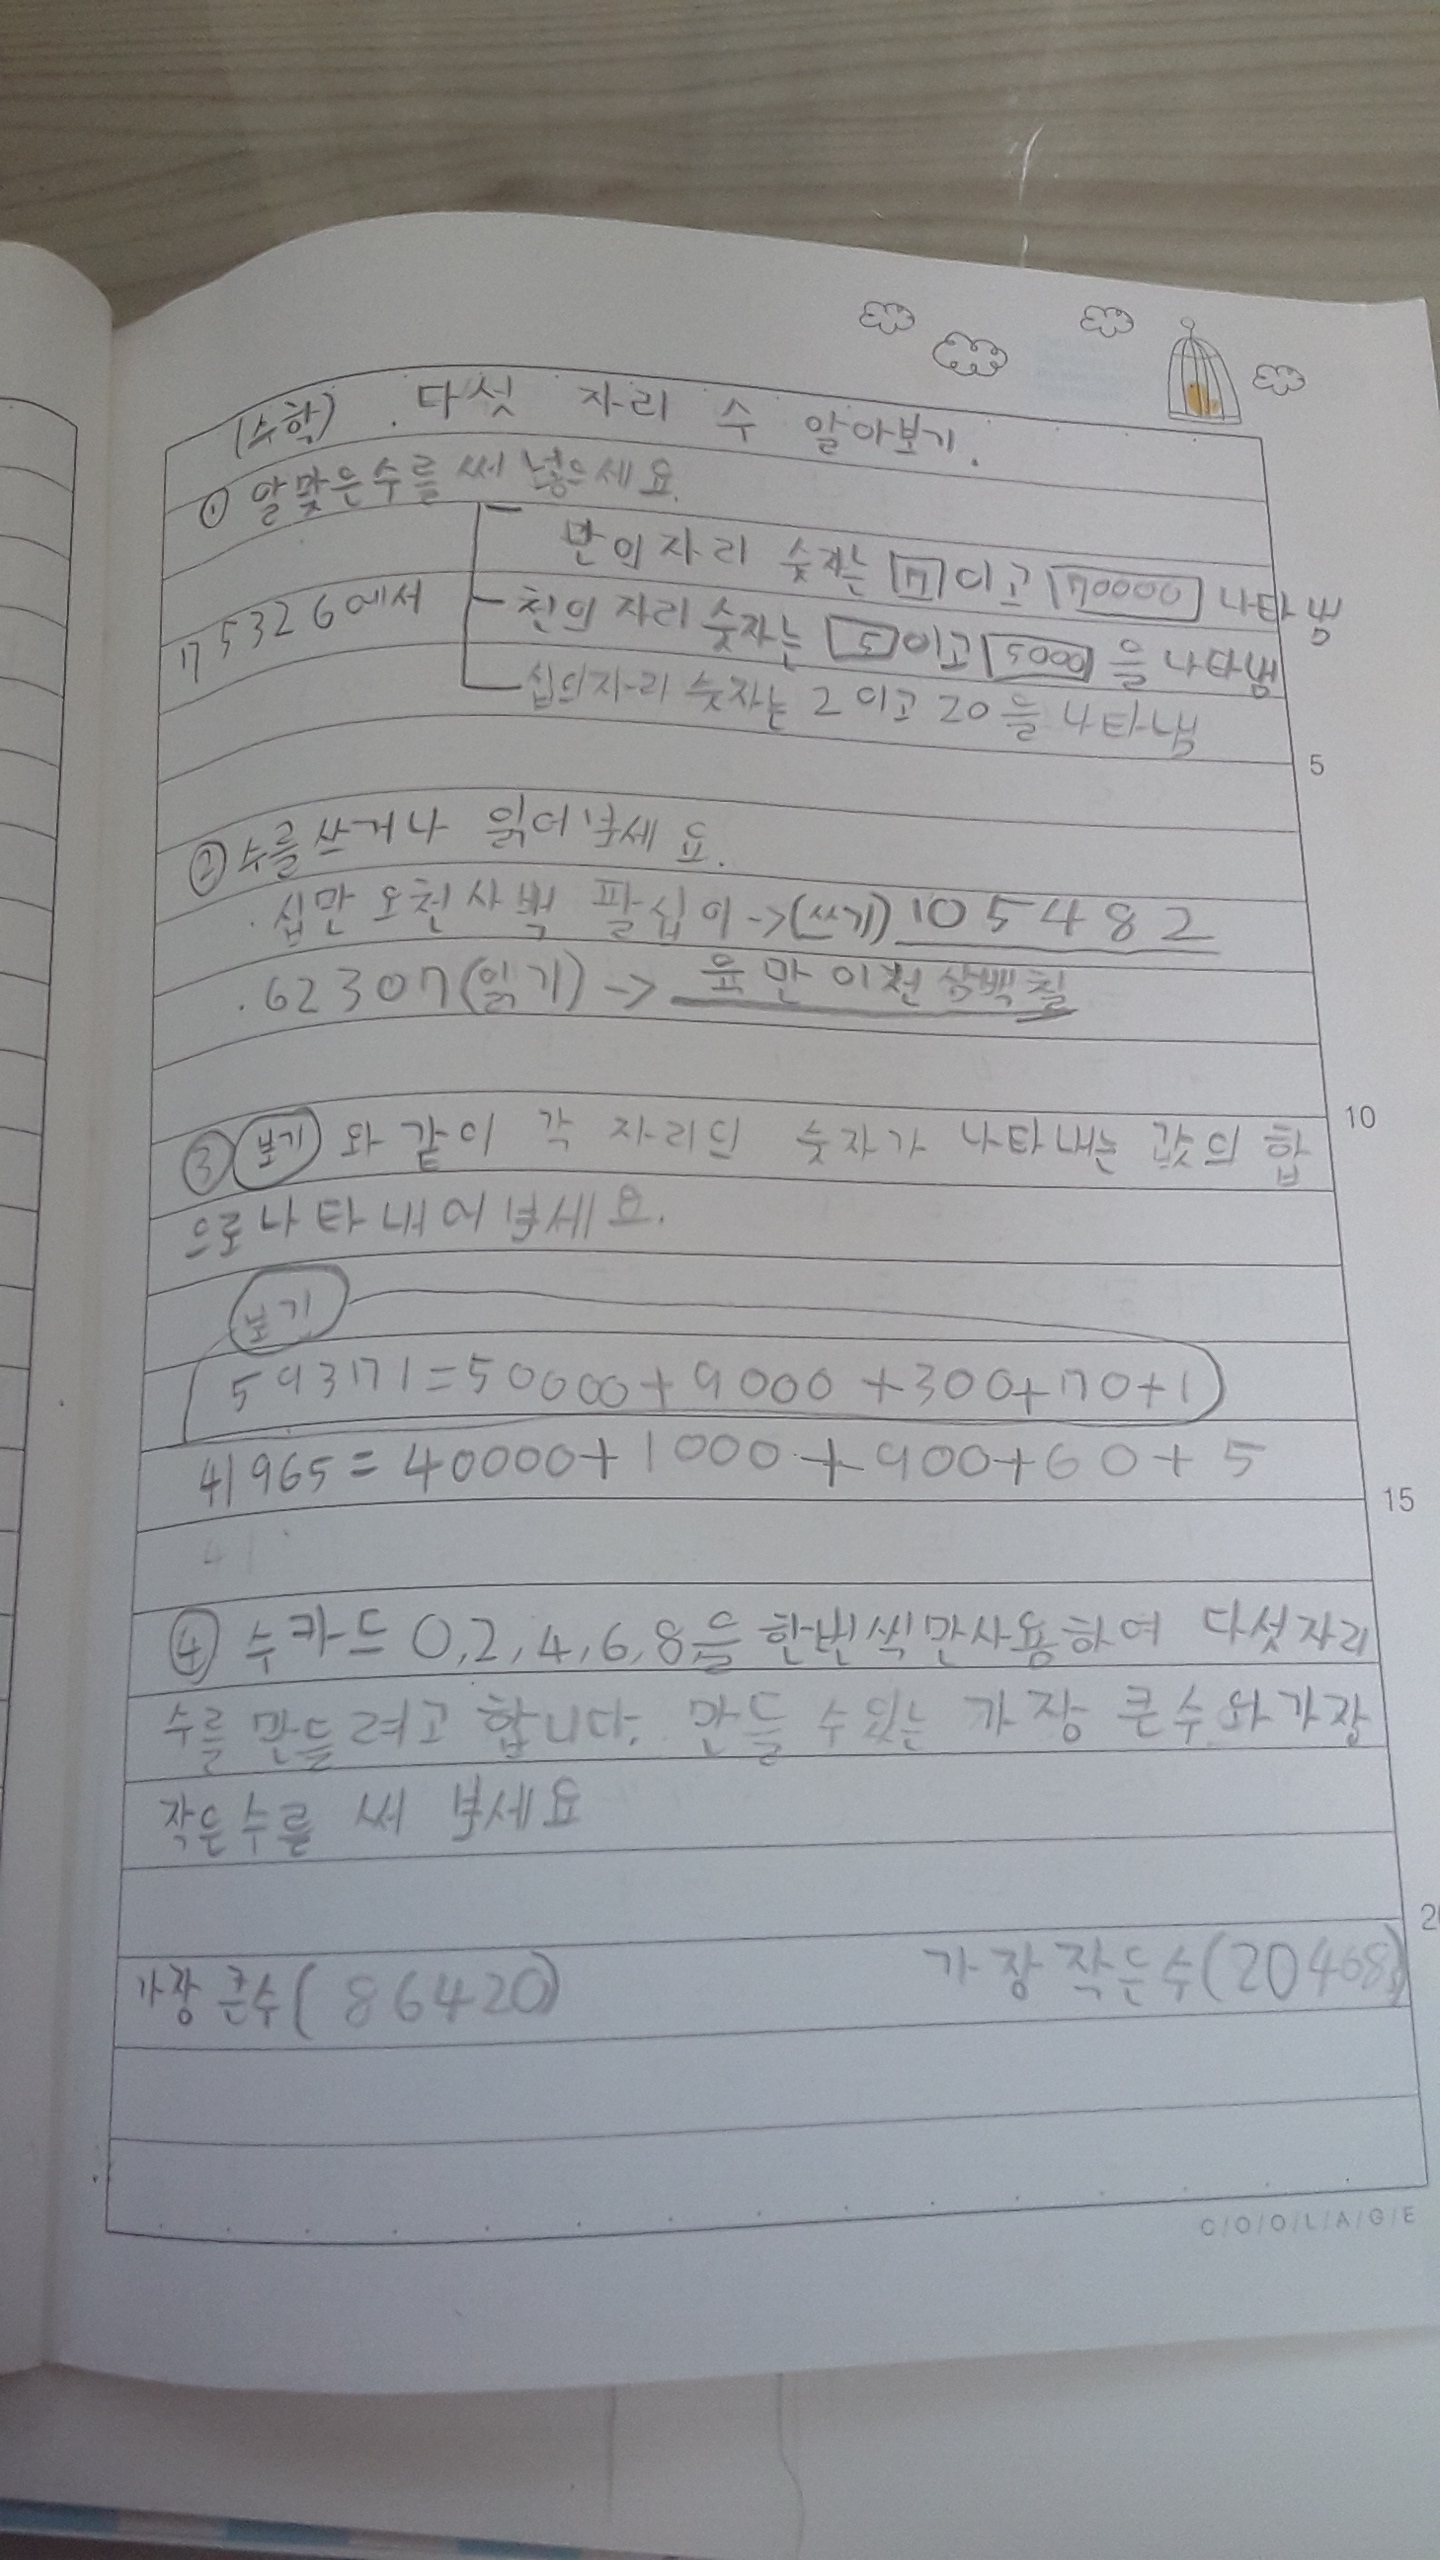 (수학) . 다섯 자리 수 알아보기.
① 알맞은수를 써 넣으세요.
만의 자리 숫자는 7이고 70000 나타냄
75326에서
천의 자리 숫자는 5이고 5000을 나타냄
십의자리 숫자는 2이고 20을 나타냄
5
② 수를쓰거나 읽어보세요.
· 십만 오천사백 팔십이->(쓰기) 105482
· 62307(읽기) -> 육만 이천삼백칠
10
③ 보기 와 같이 각 자리의 숫자가 나타내는 값의 합
으로 나타내어 보세요.
보기
59371=50000+9000+300+70+1
41965=40000+1000+900+60+5
15
41
④ 수카드 0,2,4,6,8,을 한번씩만사용하여 다섯자리
수를 만들려고 합니다. 만들 수있는 가장 큰수와 가장
작은수를 써 보세요
20
가장 큰수( 86420) 가장 작은수(20468)
C/O/O/L/A/G/E